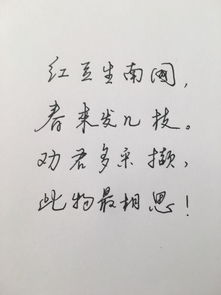 红豆生南国，
春来发几枝。
劝君多采撷，
此物最相思！